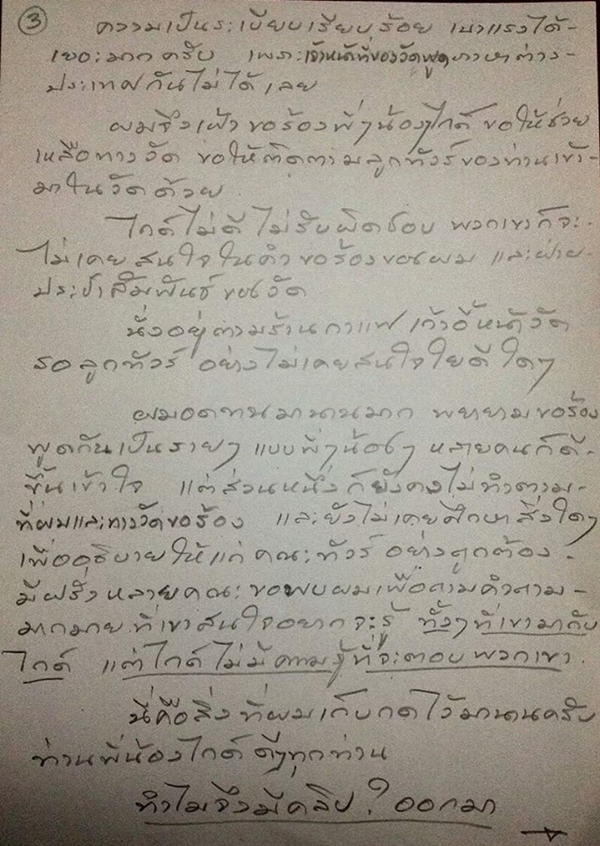 ③
ความเป็นระเบียบเรียบร้อย เบาแรงได้-
เยอะมากครับ เพราะเจ้าหน้าที่ของวัดพูดภาษาต่าง-
ประเทศกันไม่ได้เลย
ผมจึงเฝ้าขอร้องพี่ๆน้องๆไกด์ ขอให้ช่วย
เหลือทางวัด ขอให้ติดตามลูกทัวร์ของท่านเข้า-
มาในวัดด้วย
ไกด์ไม่ดี ไม่รับผิดชอบ พวกเขาก็จะ-
ไม่เคยสนใจในคำขอร้องของผม และฝ่าย-
ประชาสัมพันธ์ของวัด
นั่งอยู่ตามร้านกาแฟ เก้าอี้หน้าวัด
รอลูกทัวร์ อย่างไม่เคยสนใจใยดีใดๆ
ผมอดทนมานานมาก พยายามขอร้อง
พูดกันเป็นรายๆ แบบพี่ๆน้องๆ หลายคนก็ดี-
ขึ้นเข้าใจ แต่ส่วนหนึ่งก็ยังคงไม่ทำตาม-
ที่ผมและทางวัดขอร้อง และยังไม่เคยศึกษาสิ่งใดๆ
เพื่ออธิบายให้แก่คณะทัวร์อย่างถูกต้อง-
มีฝรั่งหลายคณะขอพบผมเพื่อถามคำถาม-
มากมายที่เขาสนใจอยากจะรู้ ทั้งๆที่เขามากับ
ไกด์ แต่ไกด์ไม่มีความรู้ที่จะตอบพวกเขา
นี่คือสิ่งที่ผมเก็บกดไว้มานานครับ
ท่านพี่น้องไกด์ดีๆทุกท่าน
ทำไมจึงมีคลิป? ออกมา